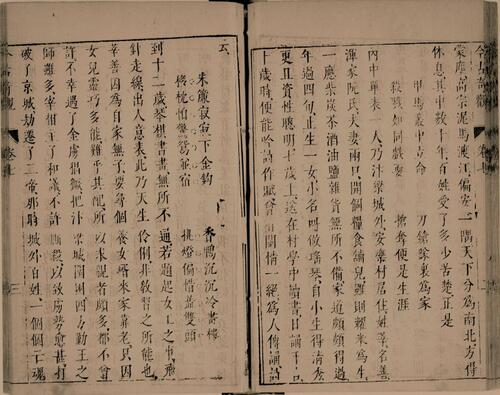 蒙塵高宗泥馬渡江偏安一隅天下分為南北方得
休息其中數十年百姓受了多少苦楚正是
甲馬叢中立命 刀鎗隊裏為家
殺戮如同戲耍 搶奪便是生涯
內中單表一人乃汴梁城外安樂村居住姓莘名善
渾家阮氏夫妻兩口開個糧食舖兒雖則糶米為生
一應柴炭茶酒油鹽雜貨無所不備家道頗頗得過
年過四旬止生一女小名叫做瑤琴自小生得清秀
更且資性聰明七歲上送在村學中讀書日誦千言
十歲時便能吟詩作賦曾有閨情一絕為人傳誦詩
云
朱簾寂寂下金鈎 香鴨沉沉冷畫樓
移枕怕驚鴛並宿 挑燈偏惜蕊雙頭
到十二歲琴棋書畫無所不通若題起女工一事飛
針走線出人意表此乃天生伶俐非教習之所能也
莘善因為自家無子要尋個養女壻來家靠老只因
女兒靈巧多能難乎其配所以求親者頗多都不曾
許不幸遇了金虜猖獗把汴梁城圍困四方勤王之
師雖多宰相主了和議不許廝殺以致虜勢愈甚打
破了京城劫遷了二帝那時城外百姓一個個亡魂